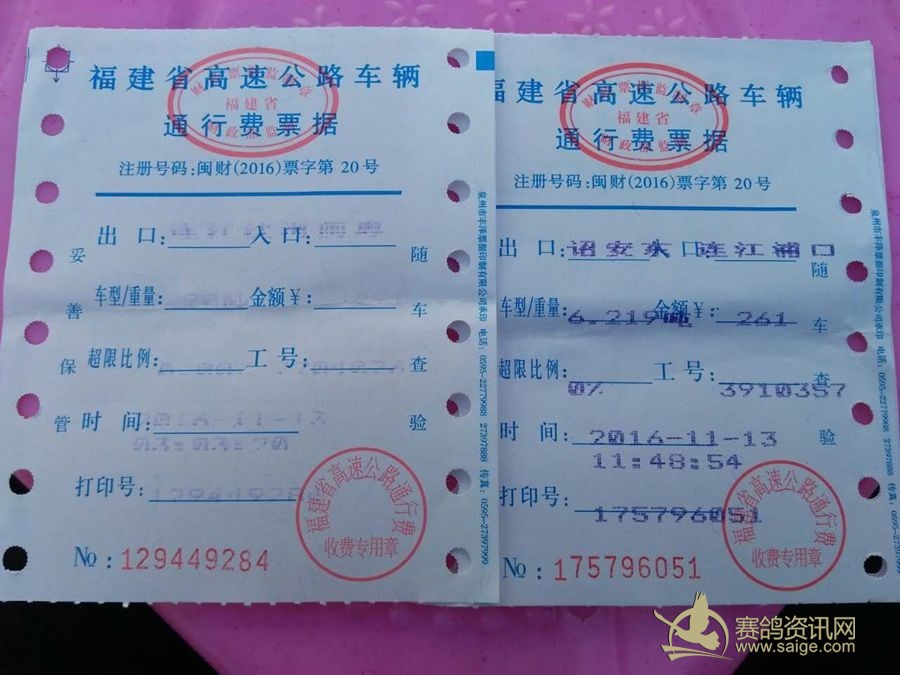 福建省高速公路车辆
通行费票据
财政票据监制章
福建省
财政部监制
注册号码:闽财(2016)票字第 20 号
出 口: 入 口:
车型/重量: 金额￥:
超限比例: 工 号:
时 间: 2016-11-13
03:03:20
打印号:
妥善保管
随车查验
№:129449284
福建省高速公路通行费
收费专用章
泉州市丰泽票据印制有限公司承印 电话: 0595-22779988 27397888 传真: 0595-27397999
福建省高速公路车辆
通行费票据
福建省
注册号码:闽财(2016)票字第 20 号
出 口:诏安东 入口:连江浦口
车型/重量:6.219吨 金额￥:261
超限比例:0% 工 号:3910357
时 间:2016-11-13
11:48:54
打印号:175796051
随车查验
№:175796051
福建省高速公路通行费
收费专用章
泉州市丰泽票据印制有限公司承印 电话: 0595-22779988 27397888 传真: 0595-27397999
赛鸽资讯网
www.saige.com